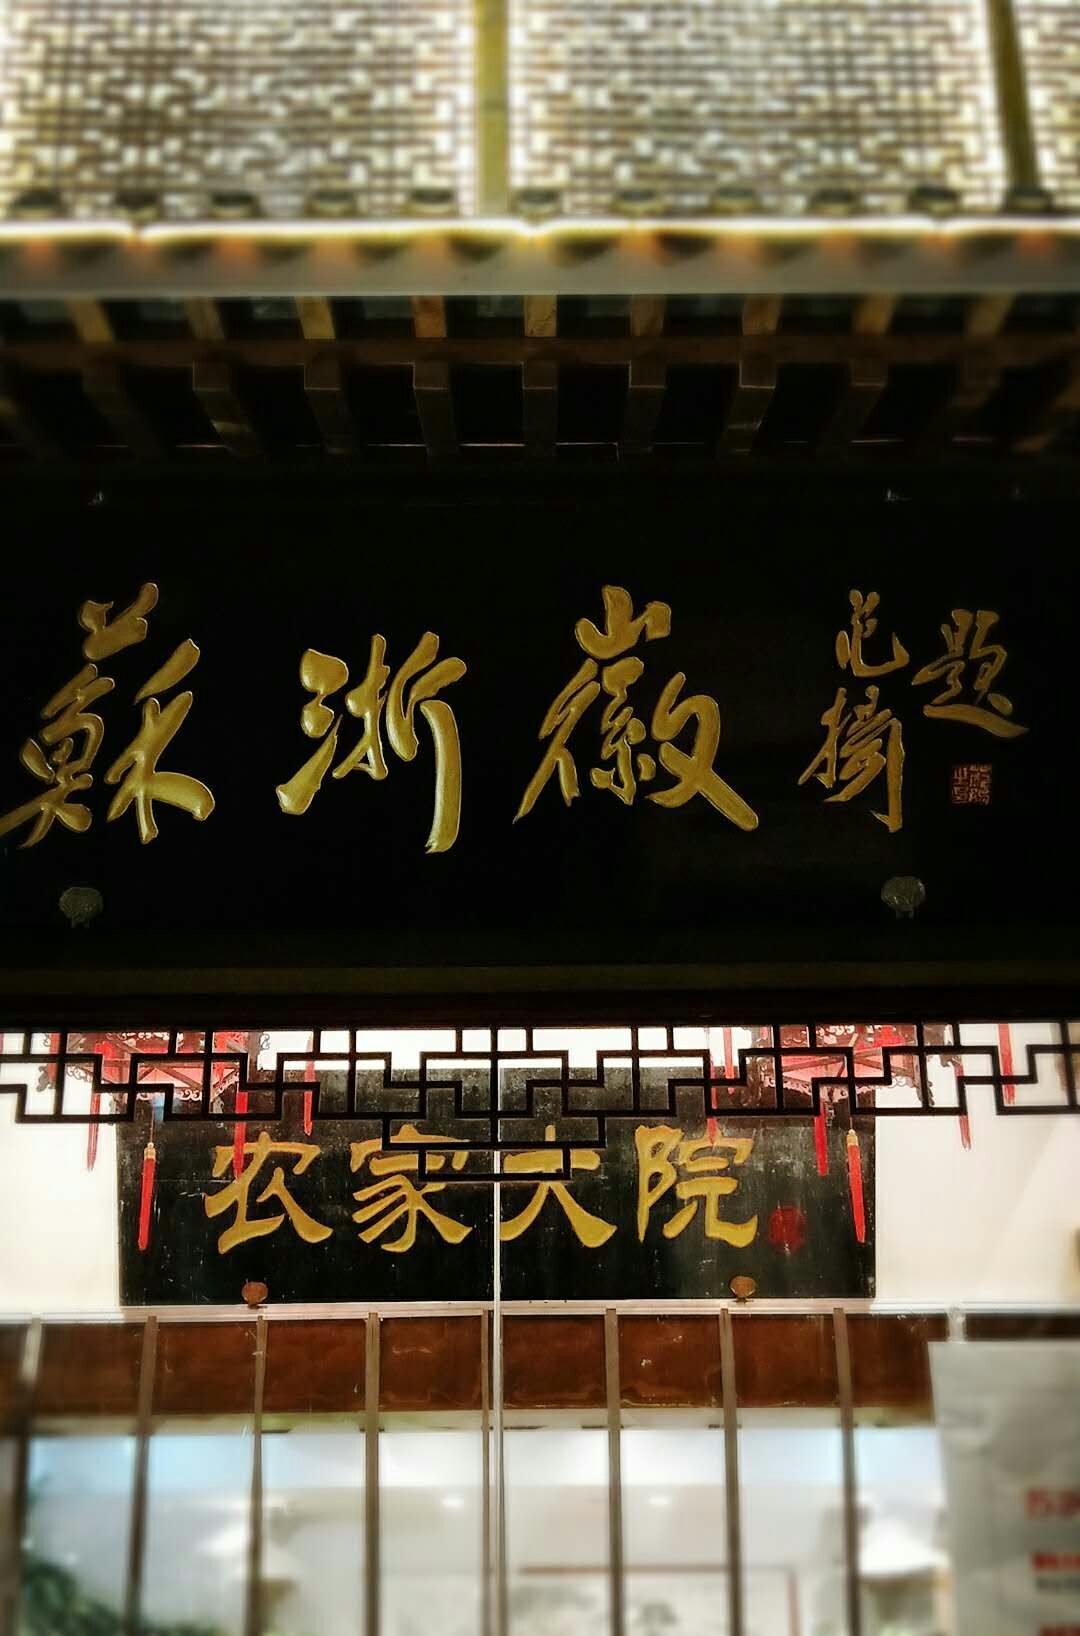 蘇浙徽
范擣題
农家大院